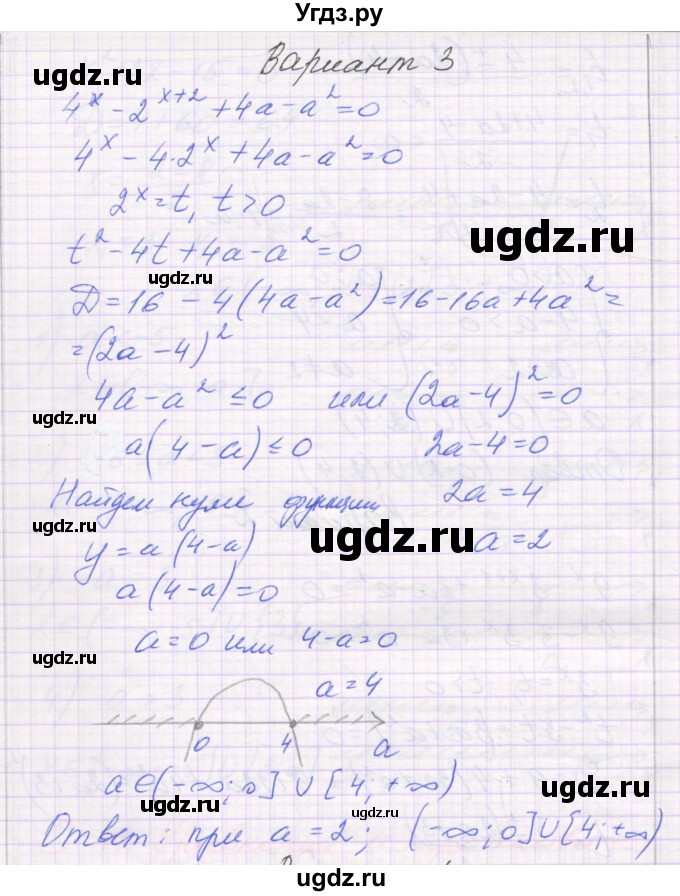 Угдз.ру
Вариант 3
ugdz.ru
4^x - 2^(x+2) + 4a - a² = 0
ugdz.ru
4^x - 4·2^x + 4a - a² = 0
2^x = t, t > 0
ugdz.ru
t² - 4t + 4a - a² = 0
ugdz.ru
D = 16 - 4(4a - a²) = 16 - 16a + 4a² =
= (2a - 4)²
4a - a² ≤ 0 или (2a - 4)² = 0
ugdz.ru
a(4 - a) ≤ 0 2a - 4 = 0
Найдем нули функции 2a = 4
ugdz.ru
ugdz.ru
y = a(4 - a) a = 2
a(4 - a) = 0
a = 0 или 4 - a = 0
ugdz.ru
a = 4
0 4 a
ugdz.ru
a ∈ (-∞; 0] ∪ [4; +∞)
ugdz.ru
Ответ: при a = 2; (-∞; 0] ∪ [4; +∞)
ugdz.ru